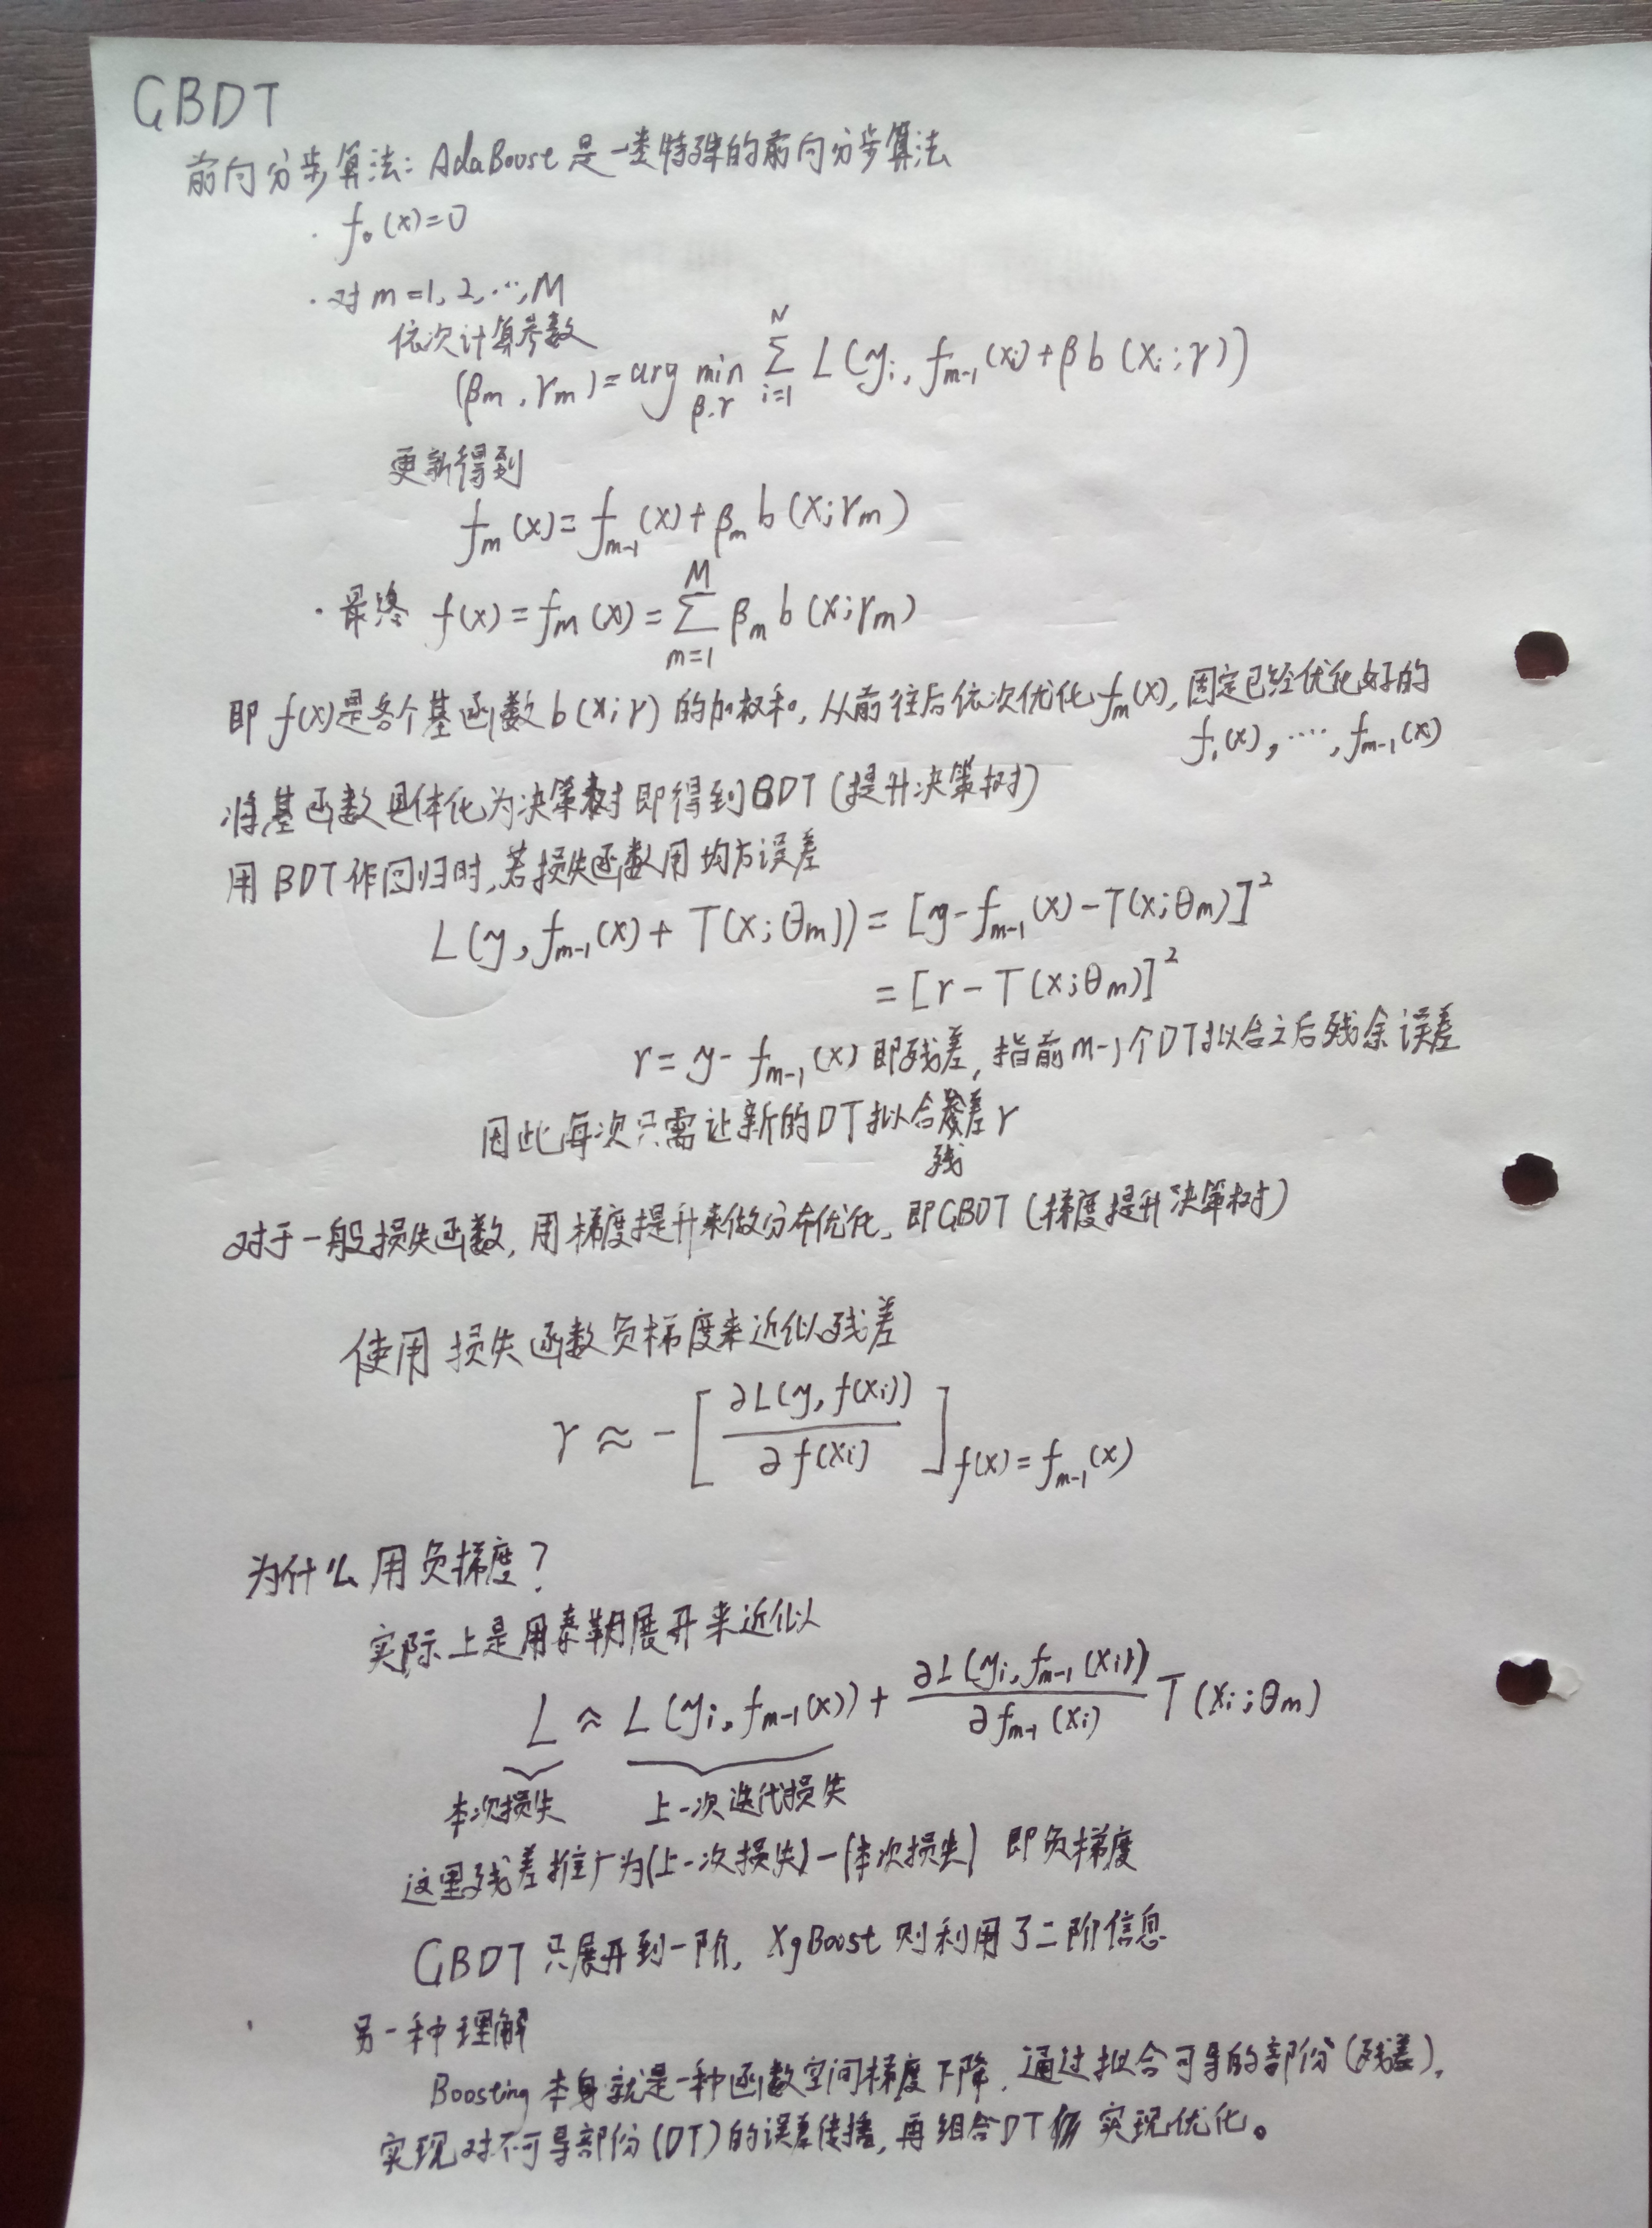 GBDT
前向分步算法: AdaBoost 是一类特殊的前向分步算法
· f₀(x)=0
· 对 m=1, 2, ···, M
依次计算参数
(βm, γm) = arg min_{β,γ} Σ_{i=1}^{N} L(yi, f_{m-1}(xi)+β b(xi;γ))
更新得到
fm(x) = f_{m-1}(x) + βm b(x;γm)
· 最终 f(x) = fM(x) = Σ_{m=1}^{M} βm b(x;γm)
即 f(x)是各个基函数b(x;γ)的加权和, 从前往后依次优化fm(x), 固定已经优化好的
f₁(x), ····, f_{m-1}(x)
将基函数具体化为决策树即得到BDT(提升决策树)
用BDT作回归时,若损失函数用均方误差
L(y, f_{m-1}(x) + T(x;θm)) = [y-f_{m-1}(x)-T(x;θm)]²
= [r-T(x;θm)]²
r = y-f_{m-1}(x) 即残差, 指前m-1个DT拟合之后残余误差
因此每次只需让新的DT拟合残差r
对于一般损失函数, 用梯度提升来做分布优化, 即GBDT (梯度提升决策树)
使用损失函数负梯度来近似残差
r ≈ -[∂L(y, f(xi))/∂f(xi)]_{f(x)=f_{m-1}(x)}
为什么用负梯度?
实际上是用泰勒展开来近似
L ≈ L(yi, f_{m-1}(x)) + ∂L(yi, f_{m-1}(xi))/∂f_{m-1}(xi) T(xi;θm)
本次损失 上一次迭代损失
这里残差推广为(上一次损失)-(本次损失) 即负梯度
GBDT只展开到一阶, XgBoost则利用了二阶信息
另一种理解
Boosting本身就是一种函数空间梯度下降, 通过拟合可导的部份(残差),
实现对不可导部份(DT)的误差传播, 再组合DT 实现优化。